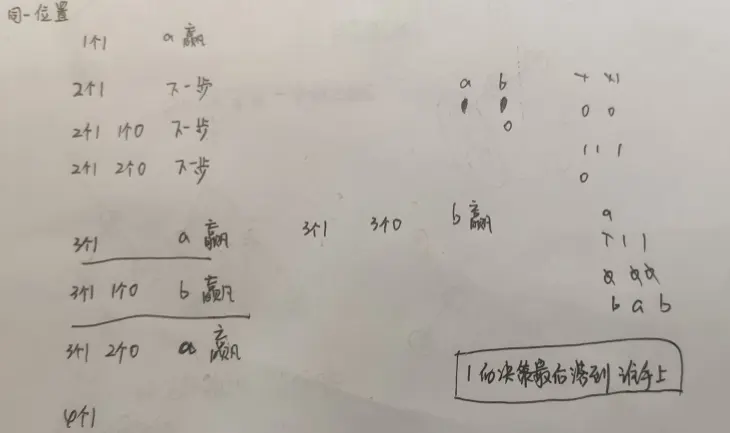 同一位置
1个1 a 赢
2个1 下一步
2个1 1个0 下一步
2个1 2个0 下一步
3个1 a 赢
3个1 1个0 b 赢
3个1 2个0 a 赢
4个1
3个1 3个0 b 赢
a b
0
1 x1
0 0
1 1 1
0
a
1 1 1
b a b
1的决策最后落到 谁手上